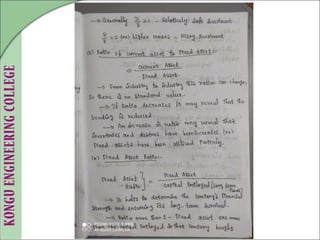 KONGU ENGINEERING COLLEGE
→ Generally D/E = 1 - Relatively safe Investment
D/E = 2 (or) higher means - Risky Investment
(5) Ratio of current asset to Fixed asset:-
= Current Asset
Fixed Asset
→ From industry to industry this ratio can change,
so there is no standard value.
→ If Ratio decreases it may reveal that the
trading is reduced
→ An increase in ratio may reveal that
inventories and debtors have been increased (or)
Fixed assets have been utilised
(6) Fixed Asset Ratio:-
Fixed Asset Ratio = Fixed Asset
Capital Employed (Long term Funds)
→ It helps to determine the company's financial
strength and ensuring its long term survival.
→ Ratio more than 1 - Fixed asset are more
than the capital employed so that company